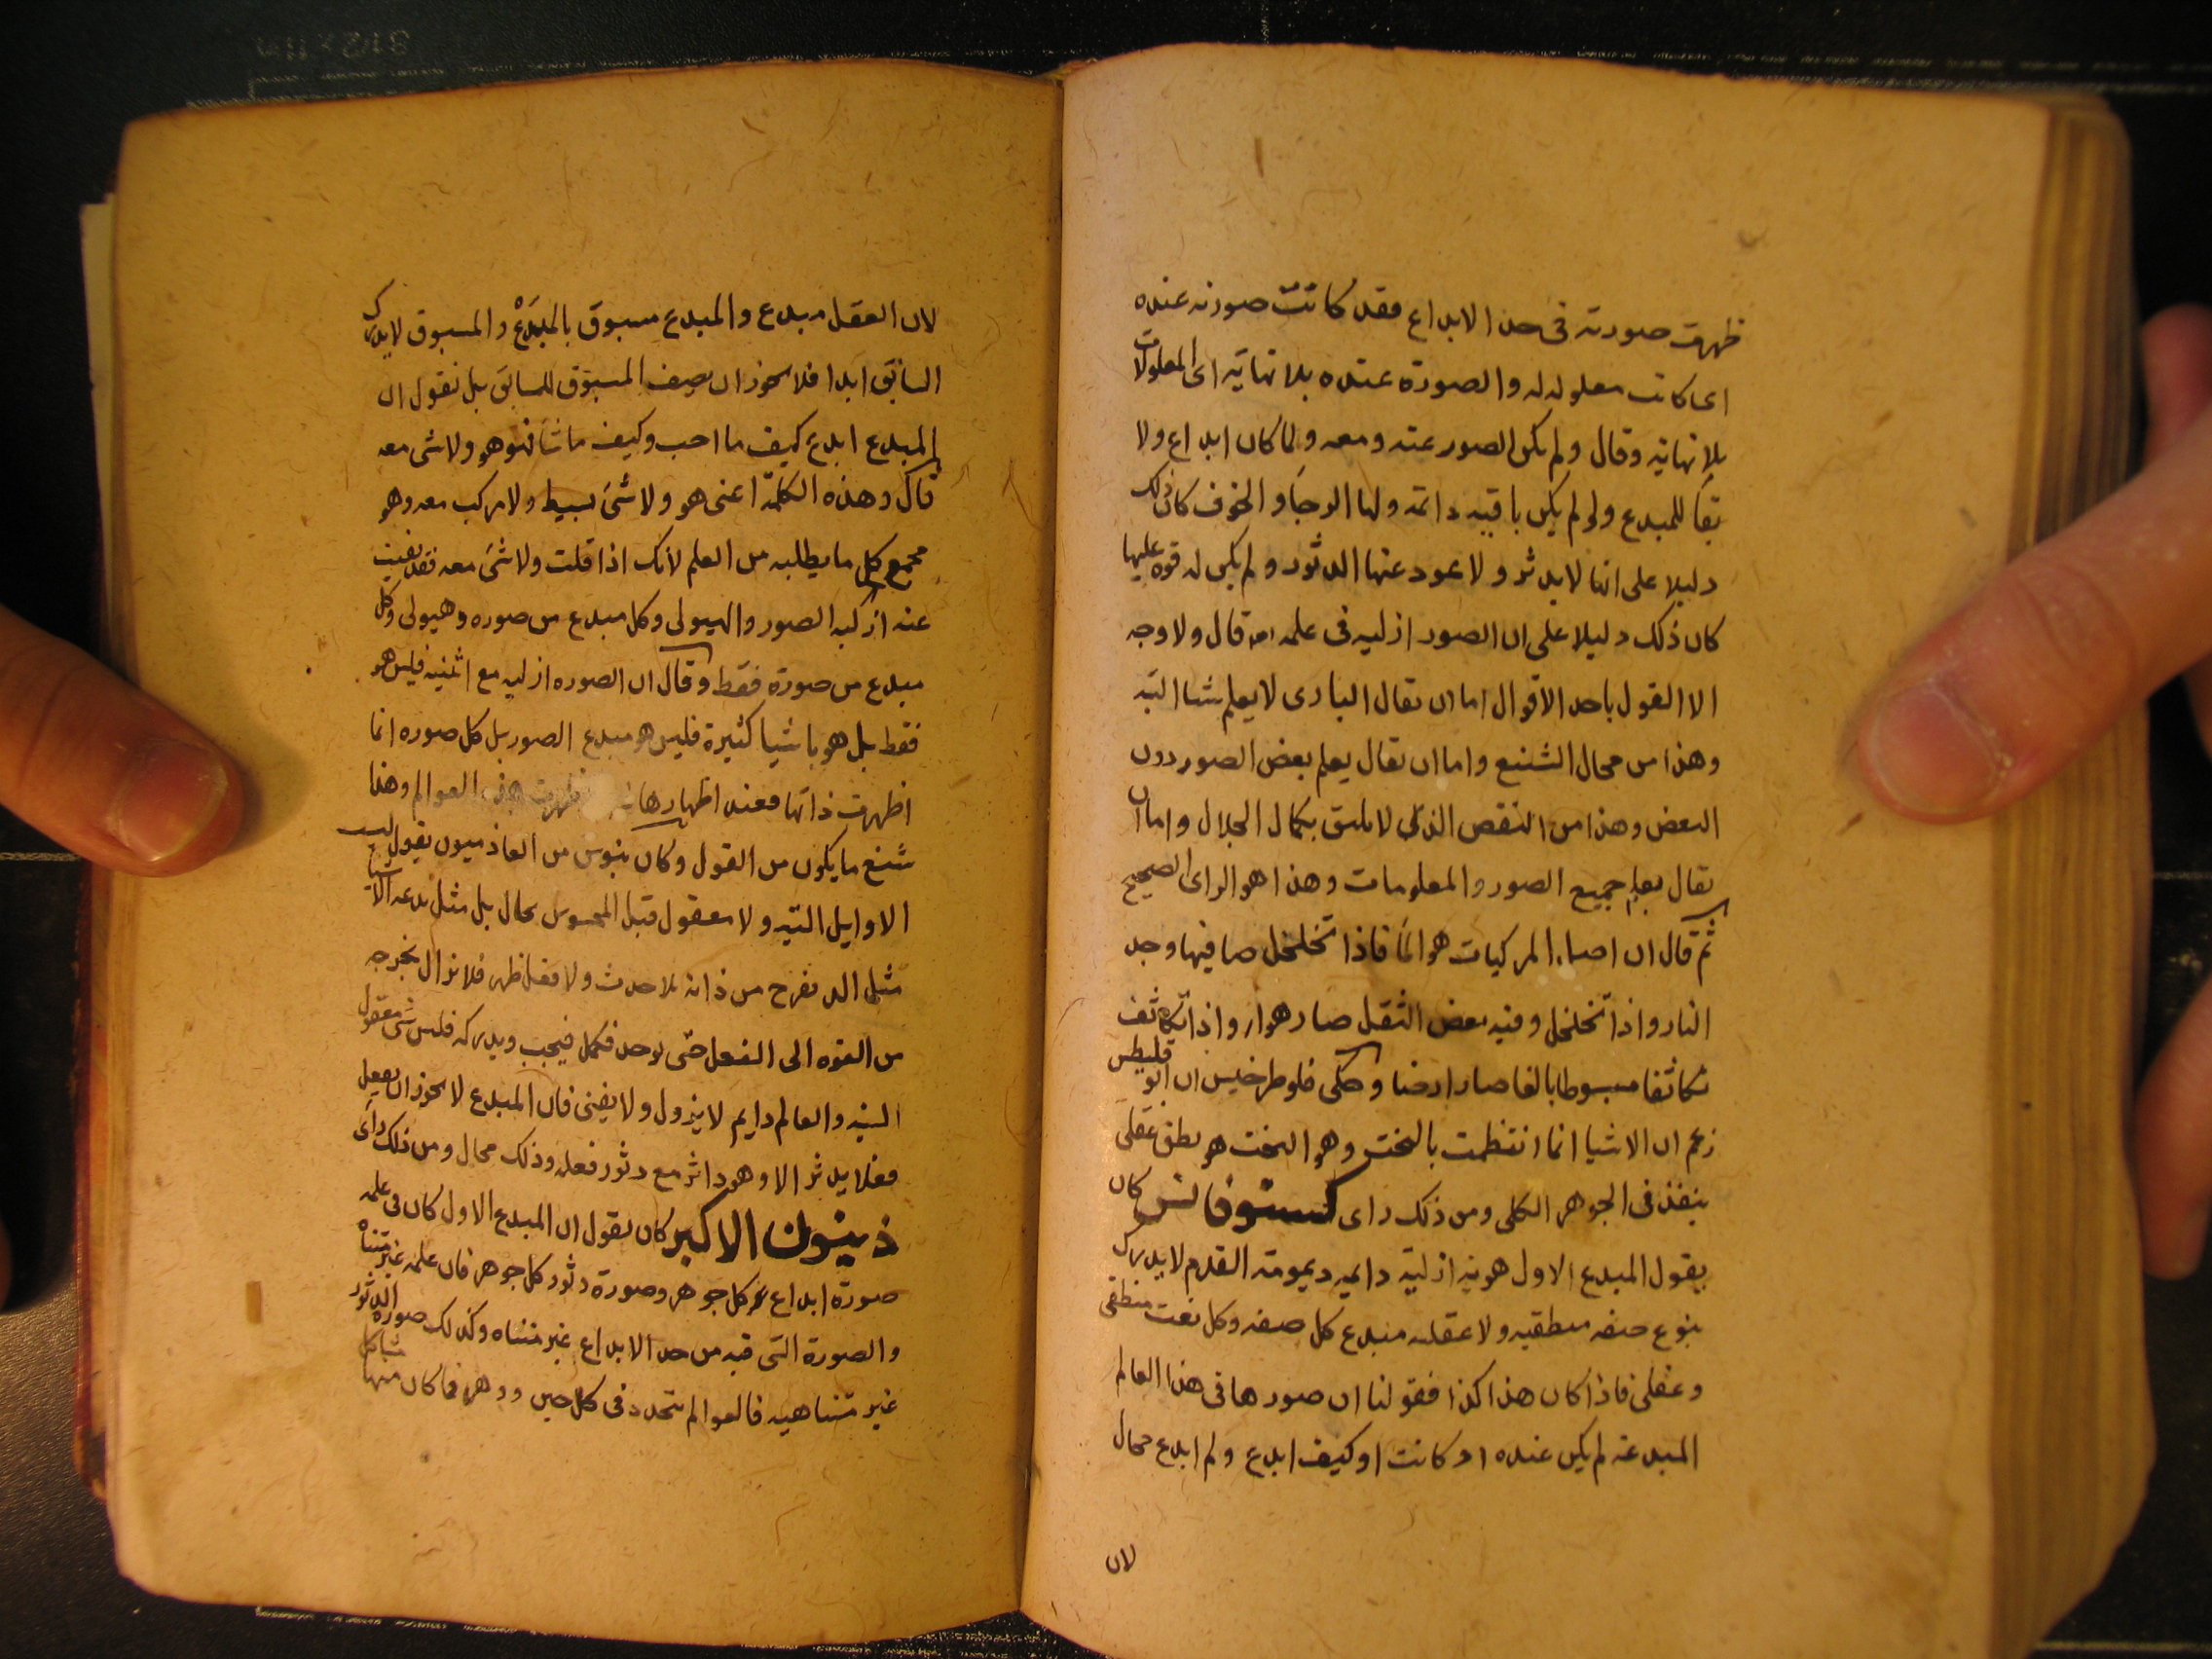 ظهرت صورته فى حد الابداع فقد كانت صورته عنده
اى كانت معلوله له والصورة عنده بلا نهاية اى المعلولات
بلا نهاية وقال ولم يكن الصور عنه ومعه ولما كان ابداع ولا
بقآ للمبدع ولو لم يكن باقيه دائمة ولها الرجآ والخوف كان ذلك
دليلا على انها لا يدثر ولا عود عنها الدثور ولم يكن له قوه عليها
كان ذلك دليلا على ان الصور ازليه فى علمه قال ولا وجه
الا القول باحد الاقوال اما ان يقال البارى لا يعلم شيا البتة
وهذا من محال الشنيع واما ان يقال يعلم بعض الصور دون
البعض وهذا من النقص الذى لا يليق بكمال الجلال واما ان
يقال يعلم جميع الصور والمعلومات وهذا هو الراى الصحيح
ثم قال ان اصل المركبات هو المآ فاذا تخلخل صافيها وجد
النار واذا تخلخل وفيه بعض الثقل صار هوا واذا تكاثف
تكاثفا مبسوطا بالغا صار ارضا وحكى فلوطرخيس ان ابوقليطس
زعم ان الاشيا انما انتظمت بالبخت وهو البخت هو نطق عقلى
ينفذ فى الجوهر الكلى ومن ذلك راى كسنوفانس كان
يقول المبدع الاول هويه ازلية دايمه ديمومة القدم لا يدرك
بنوع صفه منطقيه ولا عقليه مبدع كل صفه وكل نعت منطقى
وعقلى فاذا كان هذا كذا فقولنا ان صورها فى هذا العالم
المبدعة لم يكن عنده او كانت او كيف ابدع ولم ابدع محال
لان
لان العقل مبدع والمبدع مسبوق بالمبدَع والمسبوق لا يدرك
السابق ابدا فلا يجوز ان يصف المسبوق للسابق بل نقول ان
المبدع ابدع كيف ما احب وكيف ما شآ فهو هو ولا شى معه
قال وهذه الكلمة اعنى هو ولا شئ بسيط ولا مركب معه وهو
مجمع كل ما يطلبه من العلم لانك اذا قلت ولا شئ معه فقد نفيت
عنه ازلية الصور والهيولى وكل مبدع من صوره وهيولى وكل
مبدع من صورة فقط وقال ان الصوره ازليه مع اثنيته فليس هو
فقط بل هو باشيا كثيرة فليس هو مبدع الصور بل كل صوره انما
اظهرت ذاتها فعند اظهارها ظهرت هذه العوالم وهذا
شنع ما يكون من القول وكان من القاذميون يقول ليست
الاوايل البتة ولا معقول قبل المحسوس بحال بل مثل بدعه الاشيا
مثل الذى يفرح من ذاته بلا حدث ولا فعل ظهر فلا يزال يخرجه
من القوه الى الفعل حتى يوجد فكمل فيجب ويدركه فليس شى معقول
البتة والعالم دايم لا يزول ولا يفنى فان المبدع لا يجوز ان يفعل
فعلا يدثر الا وهو داثر مع دثور فعله وذلك محال ومن ذلك راى
ذينون الاكبر كان يقول ان المبدع الاول كان فى علمه
صورة ابداع كل جوهر وصورة دثور كل جوهر فان علمه غير متناه
والصورة التى فيه من حد الابداع غير متناه وكذلك صورة الدثور
غير متناهيه فالعوالم تتجدد فى كل حين ودهر فما كان منها مشاكل